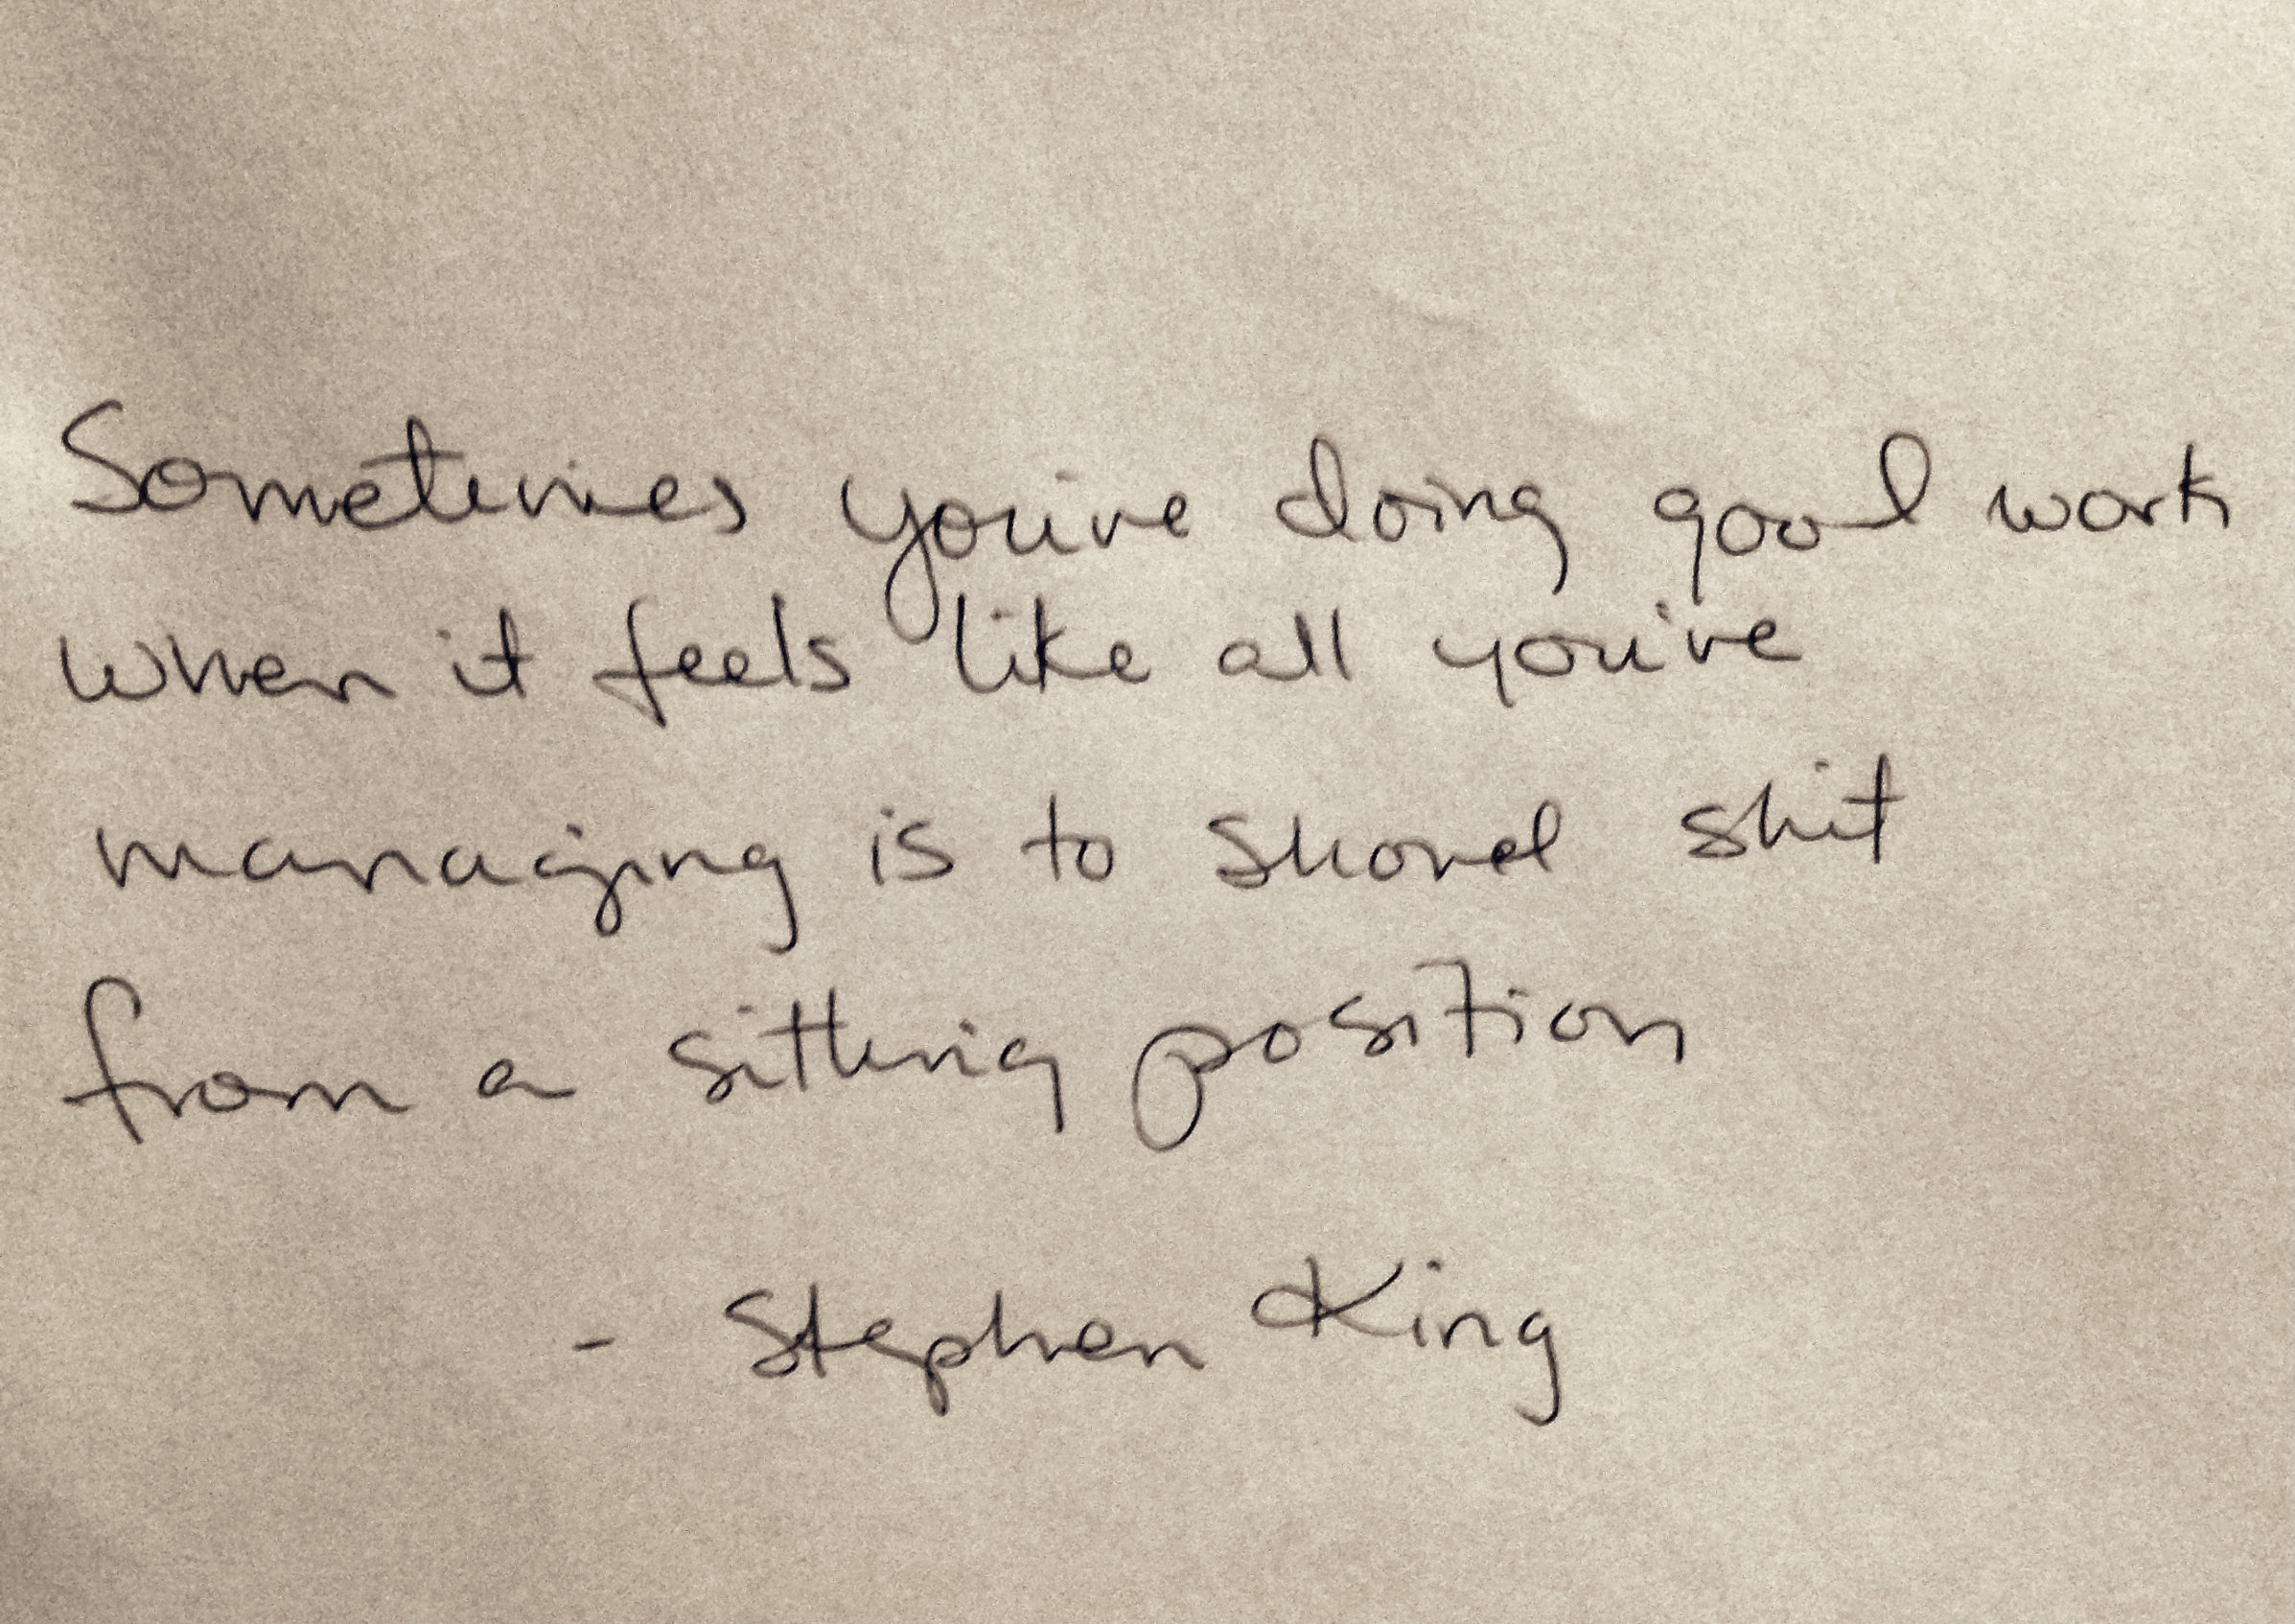 Sometimes you're doing good work
when it feels like all you're
managing is to shovel shit
from a sitting position
- Stephen King